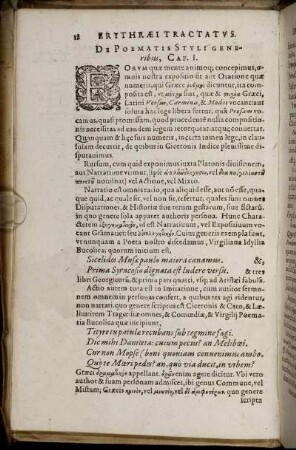 18 ERYTHRÆI TRACTATVS.
DE POEMATIS STYLI GENE-
ribus, CAP. I.
EORVM quæ mente animoq; concepimus, o-
mnis nostra expositio sit aut Oratione quæ
numeris, qui Græce dicuntur, ita com-
posita est, sint, quæ & Græci,
Latini Versus, Carmina, & Modos vocant: aut
soluta hac lege libera fertur, quā Prosam vo-
camus, quasi prorsam, quod procedente nostra compositio-
nis necessitas ad eandem legem retroacta orationem cogat.
Quòn quam & hęc suis numeris, incerta tamen lege, in clausu-
lam decurrit, de quibus in Ciceronis Indice plenissime dis-
putauimus.
Rursum, cum quid exponimus iuxta Platonis diuisionem,
aut Narratione vtimur,
vel Actione, vel Mixto.
Narratio est omnis oratio, qua aliquid esse, aut non esse, quo-
ue quid, ac qualiter, esse narramus, sub quam veniunt omnes
Disputatiōnes, & Historiæ siue rerum gestarum, siue fictarū:
in quo genere sola apparet authoris persona. Hunc Chara-
cterem est, Narratiuum, vel Expositiuum ver-
tere Grammatici: seu Cuius generis exempla, ne,
vnquam a Poeta nostro discedamus, Virgiliana Idyllia
Bucolica; quorum initium est,
Sicelides Musæ paulo maiora canamus. &,
Prima Syracosio dignata est ludere versu. & tres
libri Georgicorū, & prima pars quarti, vsq; ad Aristæi fabulā.
Actio autem tota est in Imitatione, cum auctor sermo-
nem omnem in personas confert, a quibus res agi videntur,
non narrari: quo genere scripti e Ciceronis & Cato, & Læ-
lius: item Tragœdiæ omnes, & Comœdiæ, & Virgilij Poema-
tia Bucolica quæ incipiunt:
Tityre tu patulæ recubans sub tegmine fagi.
Dic mihi Damœta: cuium pecus? an Melibœi.
Cur non Mopse (boni quoniam conuenimus ambo.
Quo te Mœri pedes? an, quò via ducit, in vrbem?
Græci appellant. enim agere dicitur. Vbi vero
author & suam personam admiscet, ibi genus Commune, vel
Mistum; Græcis vel quo genere
scripta